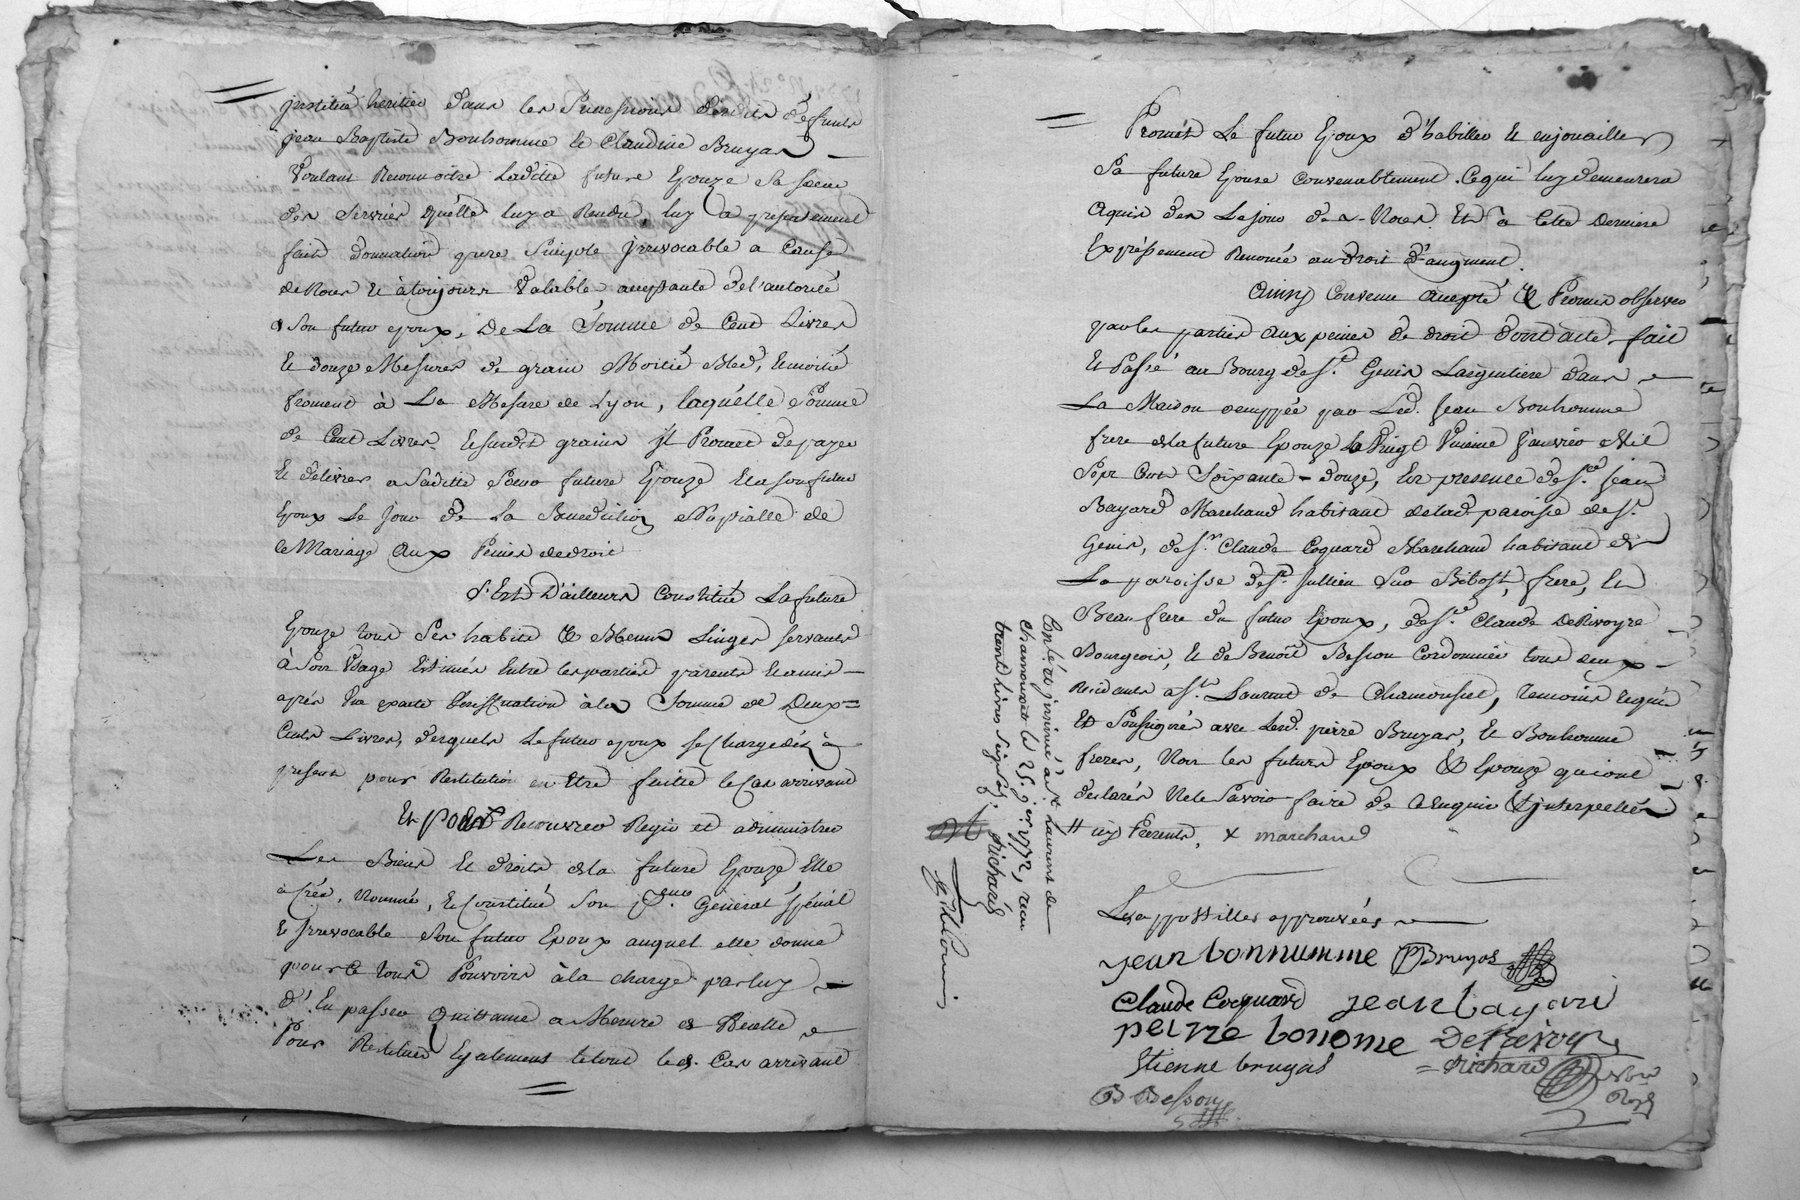 institué heritier dans les successions desdits défunts
jean Baptiste Bonhomme et Claudine Bruyas
Voulant Reconnoitre Ladite future Epouze sa sœur
des services qu'elle luy a Rendu, luy a presentement
fait donnation pure simple irrevocable a Cause
de Noces et à toujours Valable acceptante de l'autorité
son futur epoux, De La Somme de Cent Livres
Et douze Mesures de grain Moitié Bled, et moitié
froment à La Mesure de Lyon, laquelle Somme
de Cent Livres et susdit grain il Promet de payer
Et délivrer a sadite sœur future Epouze et a son futur
Epoux Le jour de La Benediction Nuptialle de
ce Mariage Aux Peines de droit
S'Est D'ailleurs Constitué La future
Epouze tous ses habits et Menus Linges servants
à son Usage Estimés Entre les parties parents et amis
après Une exacte à la Somme de Deux=
Cents Livres, desquels Le futur epoux se Charge dès à
present pour Restitution en Etre faitte le Cas arrivant
Et pour Recouvrer Regir et administrer
Les Biens Et droits de la future Epouze Elle
a Créé, Nommé, et Constitué son pr.eur Général spécial
Et Irrevocable son futur Epoux auquel elle donne
pour ce tous Pouvoirs à la charge par luy
d'En passer Quittance a Mesure de Recette
Pour Restituer Egalement le tout led. Cas arrivant
Promet Le futur Epoux d'habiller et enjouailler
Sa future Epouse Convenablement. Ce qui luy demeurera
Aquis des Le jour des Noces. Et a Cette Derniere
Expréssement Renoncé au droit d'augment.
Ainsy Convenu accepté & Promis observer
par les parties aux peines de droit dont acte, fait
Et Passé au Bourg de St. Genis Largentiere dans
La Maison occuppée par Led. Jean Bonhomme
frere de la future Epouze le Vingt Janvier Mil
Sept Cent Soixante-douze, En presence de Sr. Jean
Bayard Marchand habitant de lad. paroisse de St.
Genis, de Sr. Claude Coquard Marchand habitant de
La paroisse de St. Jullien Sur Bibost, frere, Et
Beau frere du futur Epoux, de Sr. Claude DeRivoyre
Bourgeois, et de Benoît Besson Cordonnier tous deux
Residants a St. Laurent de Chamousset, temoins requis
Et Soussignés avec Lesd. pierre Bruyas, et Bonhomme
freres, Non les futurs Epoux & Epouze qui ont
declarés Ne le Savoir faire de Enquis & interpellés
Parents, x marchand
Les appostilles approuvées
jean bonnumme PBruyas
Claude Coquard jean bayard
peirre bonome DeRivoyre
Etienne bruyas Richard
B Besson
Controlé et insinué à St. Laurent de
chamousset le 25 jer. 1772, reçu
trente livres six s.
Richard